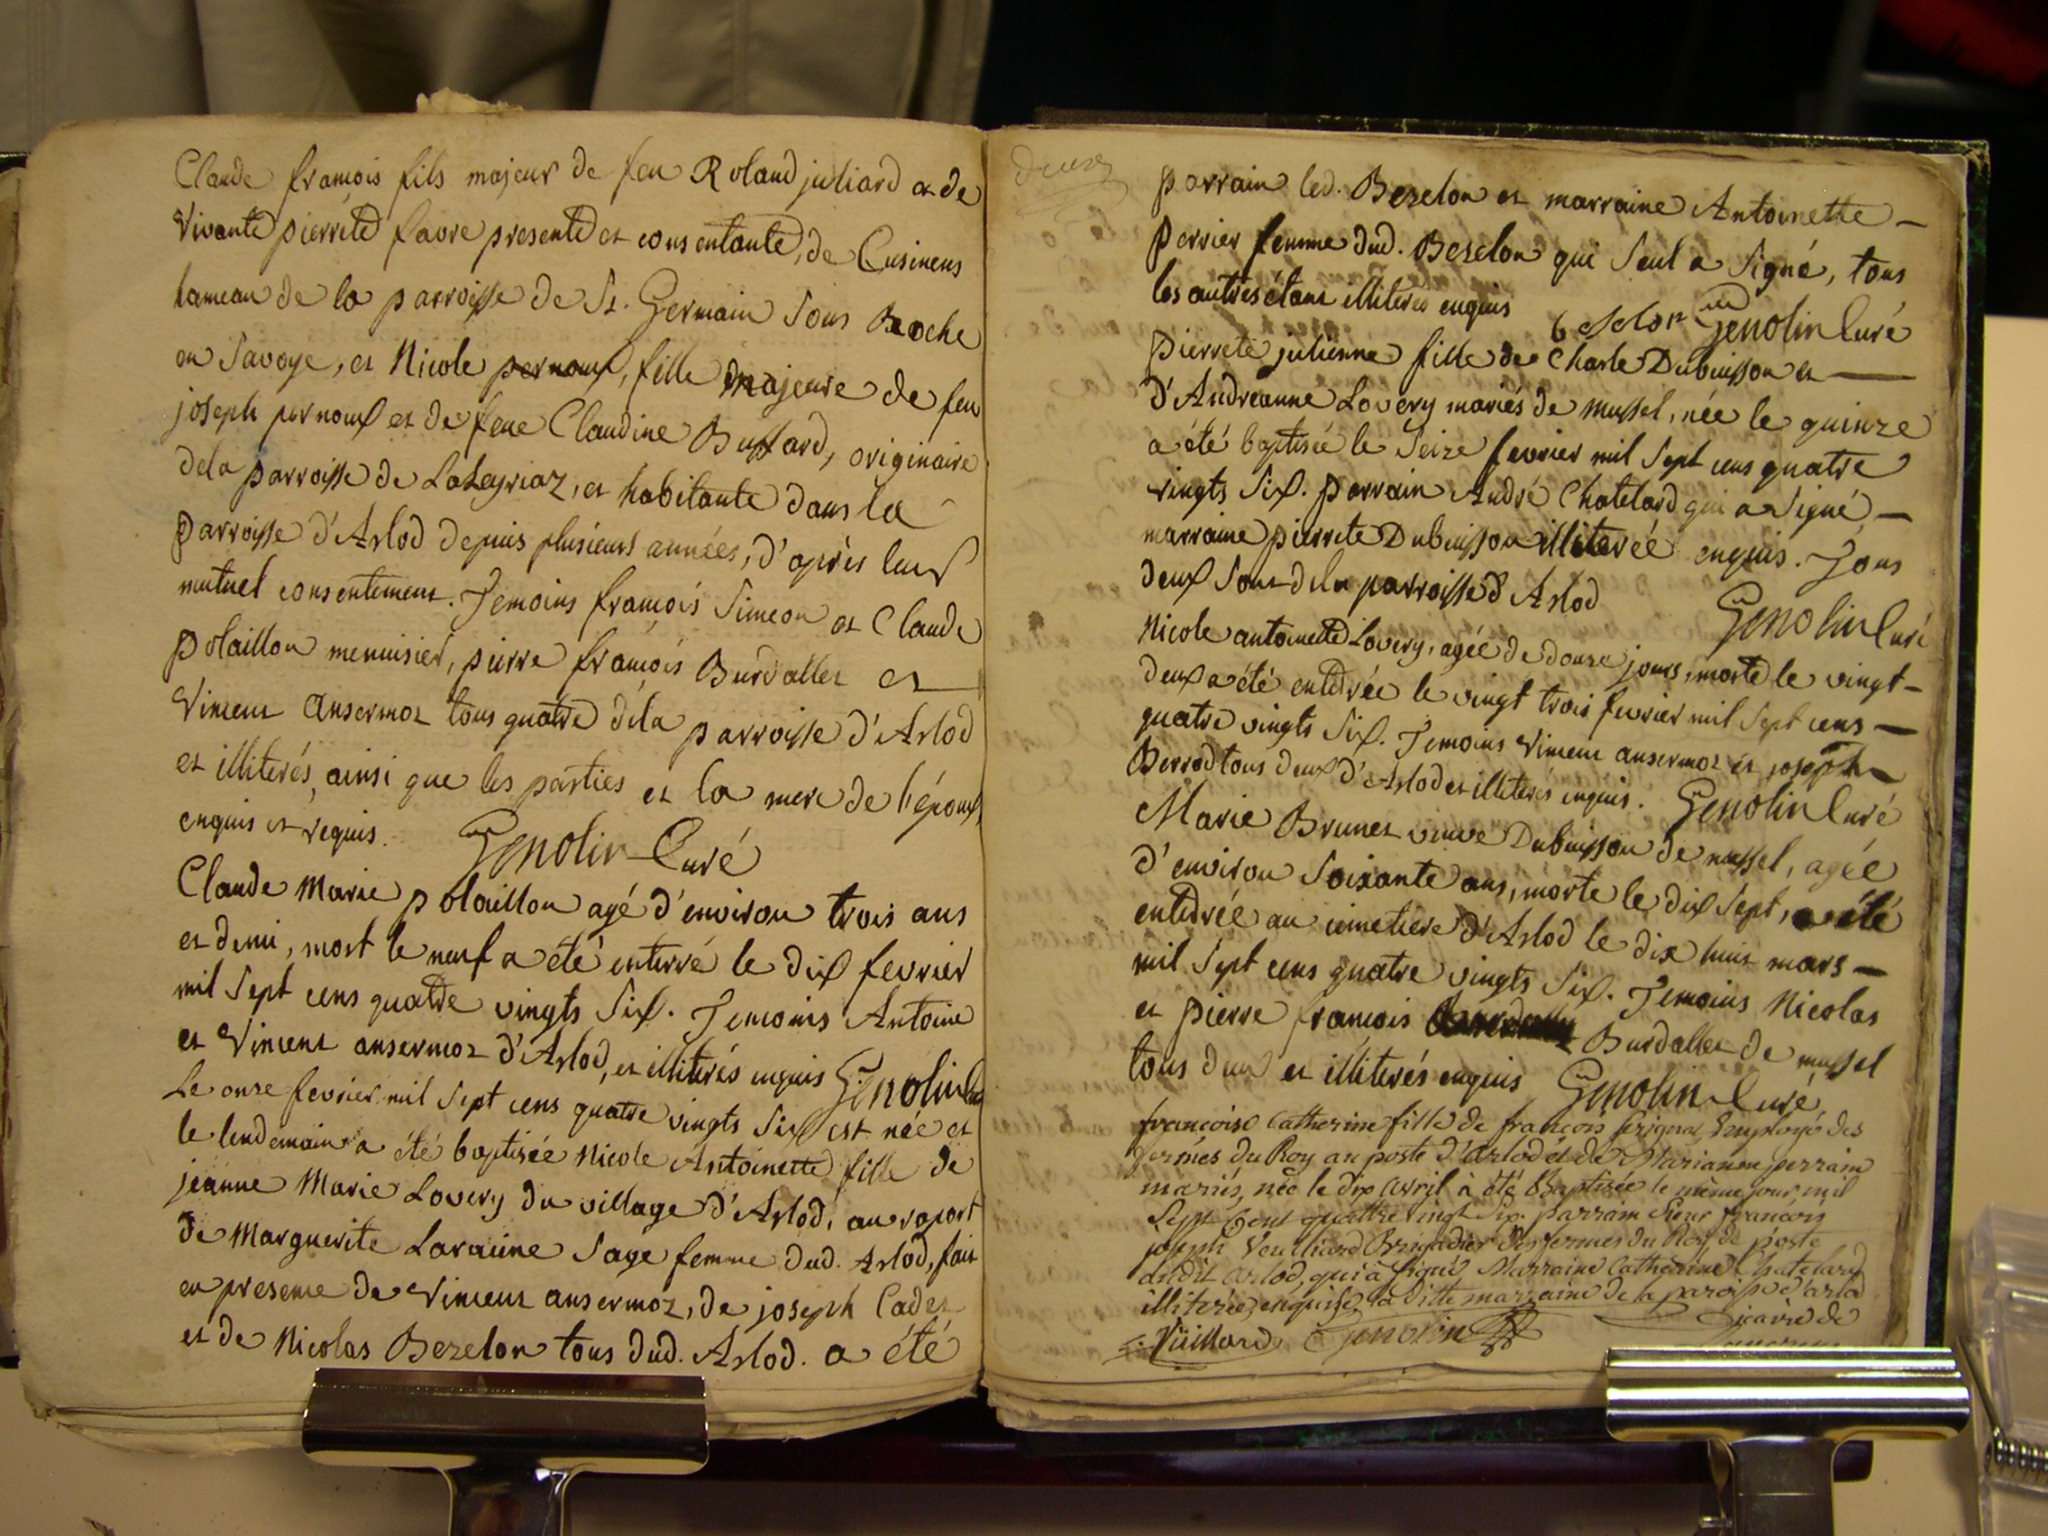 Claude françois fils majeur de feu Roland juliard et de
Vivante pierrete favre presente et consentante, de Cusinens
hameau de la parroisse de St. Germain sous Roche
en Savoye, et Nicole pernoux, fille majeure de feu
joseph pernoux et de feue Claudine Buffard, originaire
dela parroisse de Laleyriaz, et habitante dans la
parroisse d'Arlod depuis plusieurs années, d'après leur
mutuel consentement. Temoins françois Simeon et Claude
polaillon menuisier, pierre françois Burdallet et
Vincent ansermoz tous quatre dela parroisse d'Arlod
et illiterés, ainsi que les parties et la mere de l'époux,
enquis et requis. Genolin Curé
Claude Marie polaillon agé d'environ trois ans
et demi, mort le neuf a été enterré le dix fevrier
mil sept cens quatre vingts six. Temoins Antoine
et Vincent ansermoz d'Arlod, et illiterés enquis Genolin
Le onze fevrier mil sept cens quatre vingts six est née et
le lendemain a été baptisée Nicole Antoinette fille de
jeanne Marie Lovery du village d'Arlod, au raport
de Marguerite Laraime sage femme dud. Arlod, fait
en presence de Vincent ansermoz, de joseph Cadet
et de Nicolas Bezelon tous dud. Arlod. a été
parrain led. Bezelon et marraine Antoinette
perrier femme dud. Bezelon qui seul a signé, tous
les autres étant illiterés enquis Genolin Curé
pierrete julienne fille de Charle Dubuisson et
d'Andréanne Lovery mariés de mussel, née le quinze
a été baptisée le seize fevrier mil sept cens quatre
vingts six. parrain André Chatelard qui a signé,
marraine pierrete Dubuisson illiterée enquis. Tous
deux sont dela parroisse d'Arlod Genolin Curé
Nicole antoinette Lovery, agée de douze jours, morte le vingt
deux a été enterrée le vingt trois fevrier mil sept cens
quatre vingts six. Temoins Vincent ansermoz et joseph
Berrod tous deux d'Arlod et illiterés enquis. Genolin Curé
Marie Brunet veuve Dubuisson de mussel, agée
d'environ soixante ans, morte le dix sept, a été
enterrée au cimetiere d'Arlod le dix huit mars
mil sept cens quatre vingts six. Temoins Nicolas
et pierre françois Burdallet de mussel
tous deux et illiterés enquis Genolin Curé
françoise Catherine fille de françois employé des
fermes du Roy au poste d'arlod et de Marianne perrain
mariés, née le dix avril à été Baptisée le même jour mil
sept Cent quattre vingt six. parrain sieur françois
joseph Vuilliard Brigadier des fermes du Roy de poste
dudit arlod, qui à signé Marraine Catherine Chatelard
illiterée, enquise, la ditte marraine de la paroisse d'arlod
Vüillard Genolin Vicaire de